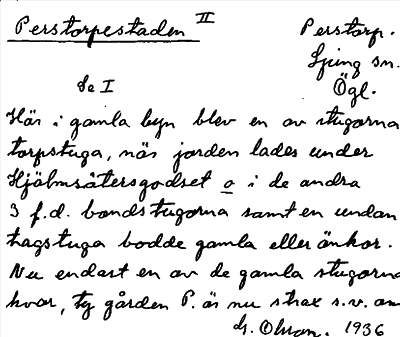 Perstorpestaden II Perstorp.
Ljung sn.
Se I Ögl.
Här i gamla byn blev en av stugorna
torpstuga, när jorden lades under
Hjälmsätersgodset o i de andra
3 f.d. bondstugorna samt en undan
tagstuga bodde gamla eller änkor.
Nu endast en av de gamla stugorna
kvar, ty gården P. är nu strax s.v. om
G. Olson. 1936